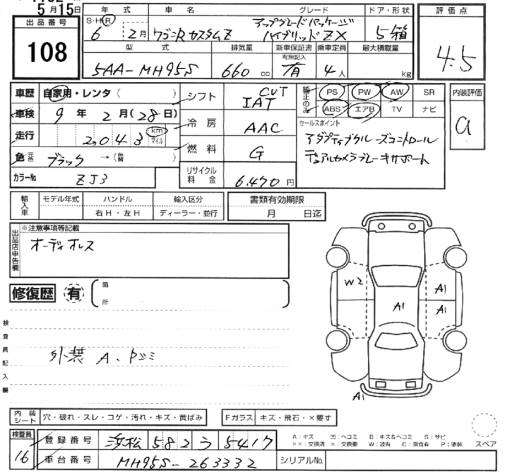 5月15日
出品番号
108
年式
S・H・R
6年 2月
車名
ワゴンRカスタムZ
グレード
アップグレードパッケージ
ハイブリッドZX
ドア・形状
5箱
評価点
4.5
型式
5AA-MH95S
排気量
660cc
新車保証書
有無記入
有
乗車定員
4人
最大積載量
kg
車歴 自家用・レンタ( )
車検 9年 2月(28日)
走行 20043 km マイル
色 元色 ブラック→(替 )
カラーNo ZJ3
シフト CVT IAT
冷房 AAC
燃料 G
リサイクル料金 6,470円
PS PW AW SR
ABS エアB TV ナビ
セールスポイント
アダプティブクルーズコントロール
デュアルカメラブレーキサポート
内装評価
a
輸入車
モデル年式 ハンドル 輸入区分
右H・左H ディーラー・並行
書類有効期限
月 日迄
出品店申告欄
※注意事項等記載
オーディオレス
修復歴 有
箇所
検査員記入欄
外装 A、Pコミ
W2
A1
A1
A1
内装シート 穴・破れ・スレ・コゲ・汚れ・キズ・黄ばみ
Fガラス キズ・飛石・×要す
検査員
16
登録番号 浜松 582 う 5417
車台番号 MH95S-263332
シリアルNo.
A:キズ U:ヘコミ B:キズ&ヘコミ S:サビ
××:交換済 ×:交換要 W:波有 C:腐食有 P:塗装
スペア